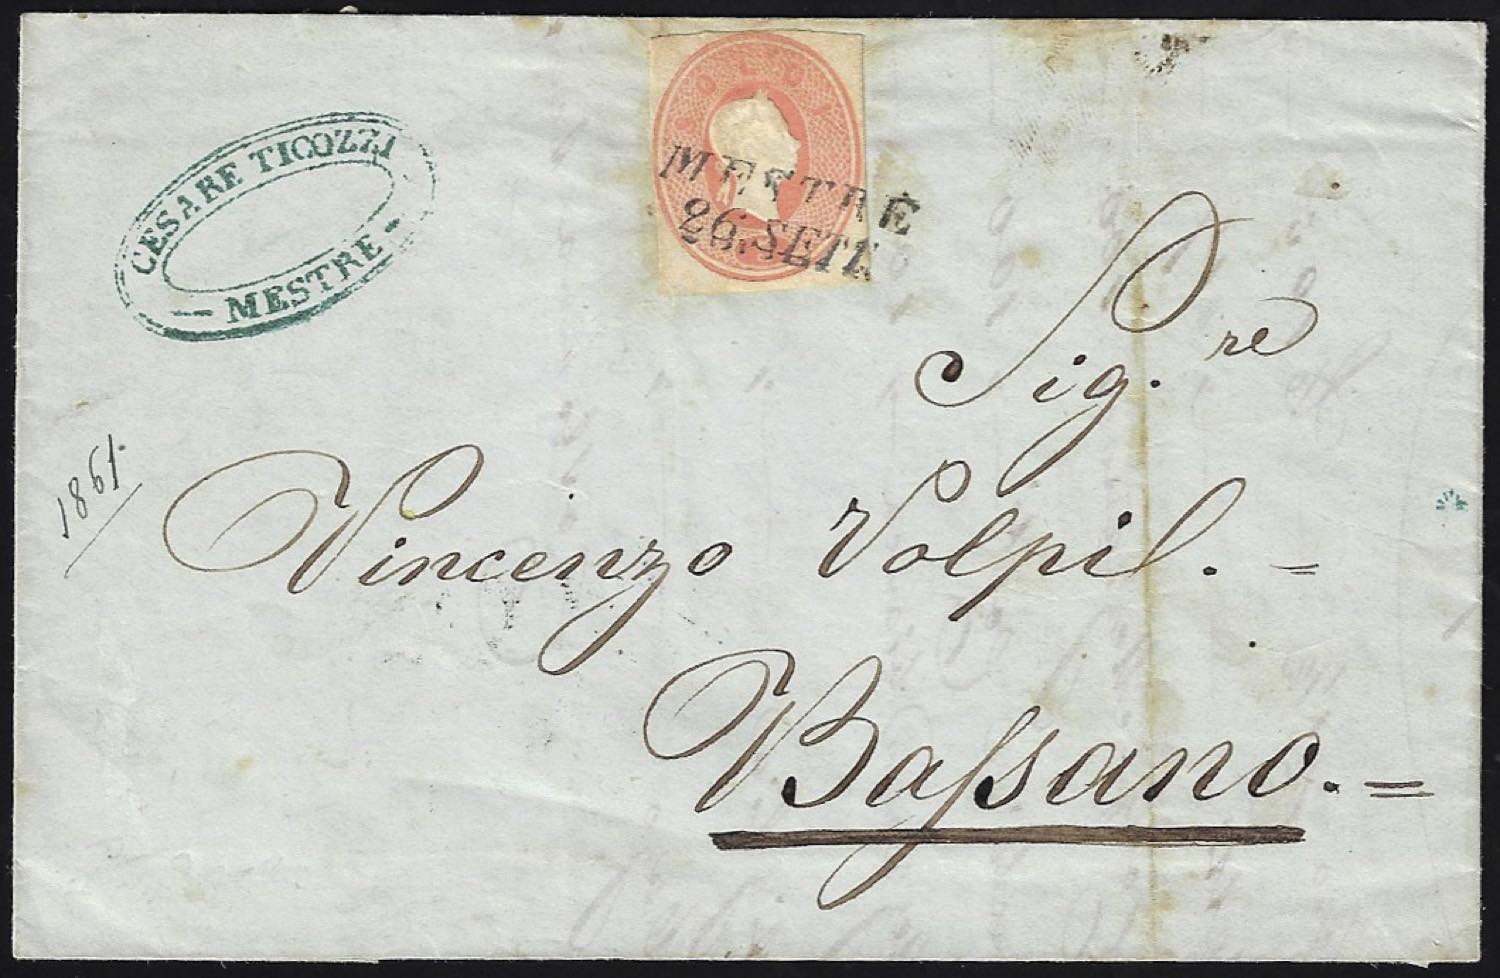 CESARE TICOZZI
— MESTRE -
SOLDI
MESTRE
26. SETT.
1861.
Sig.re
Vincenzo Volpil. =
Baſsano. =